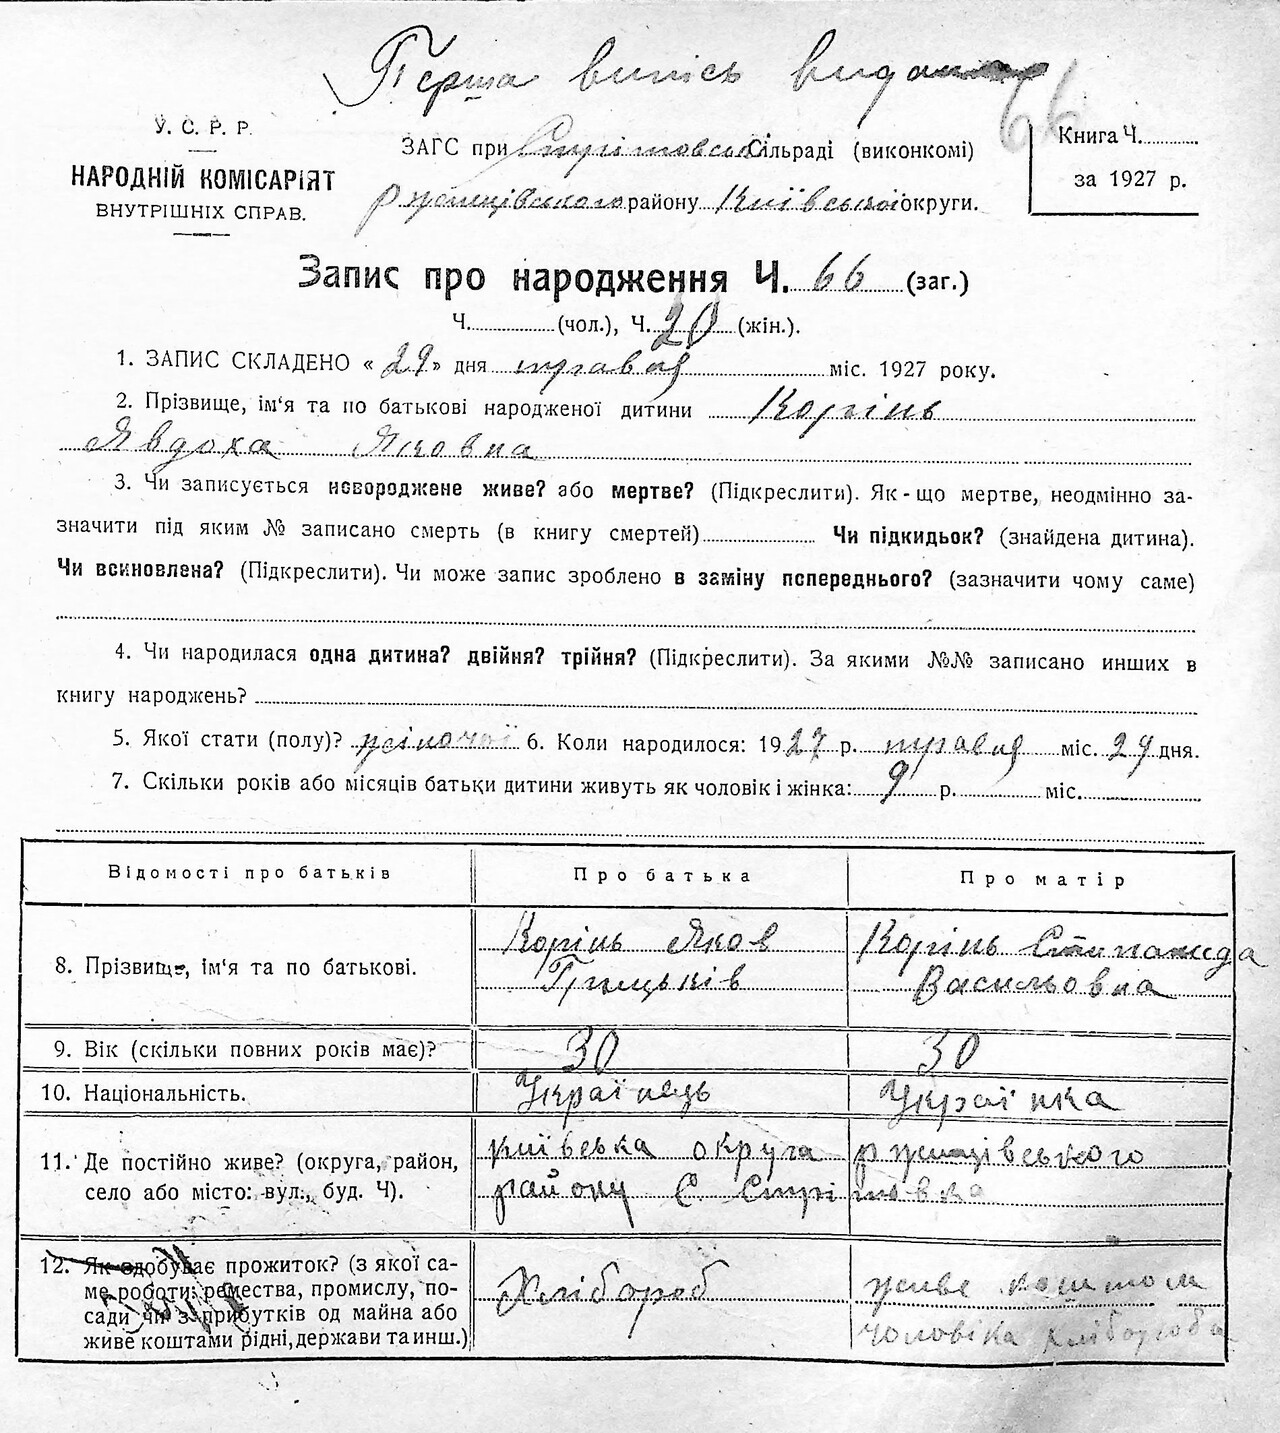 Перша випись видана
66
У. С. Р. Р.
НАРОДНІЙ КОМІСАРІЯТ
ВНУТРІШНІХ СПРАВ.
ЗАГС при Стрітовськ Сільраді (виконкомі)
ржищівського району Київської округи.
Книга Ч.
за 1927 р.
Запис про народження Ч. 66 (заг.)
Ч. (чол.), Ч. 20 (жін.).
1. ЗАПИС СКЛАДЕНО « 29 » дня травня міс. 1927 року.
2. Прізвище, ім'я та по батькові народженої дитини Корінь
Явдоха Яковна
3. Чи записується новороджене живе? або мертве? (Підкреслити). Як-що мертве, неодмінно за-
значити під яким № записано смерть (в книгу смертей) Чи підкидьок? (знайдена дитина).
Чи всиновлена? (Підкреслити). Чи може запис зроблено в заміну попереднього? (зазначити чому саме)
4. Чи народилася одна дитина? двійня? трійня? (Підкреслити). За якими №№ записано инших в
книгу народжень?
5. Якої стати (полу)? жіночої 6. Коли народилося: 1927 р. травня міс. 29 дня.
7. Скільки років або місяців батьки дитини живуть як чоловік і жінка: 9 р. міс.
Відомості про батьків Про батька Про матір
8. Прізвище, ім'я та по батькові. Корінь Яков Грицьків Корінь Степанида Васильовна
9. Вік (скільки повних років має)? 30 30
10. Національність. Українець Українка
11. Де постійно живе? (округа, район, київська округа ржищівського
село або місто: вул., буд. Ч). району С Стрітовка
12. Як здобуває прожиток? (з якої са-
ме роботи: ремества, промислу, по- Хлібороб живе коштом
сади чи з прибутків од майна або
живе коштами рідні, держави та инш.) чоловіка хлібороба